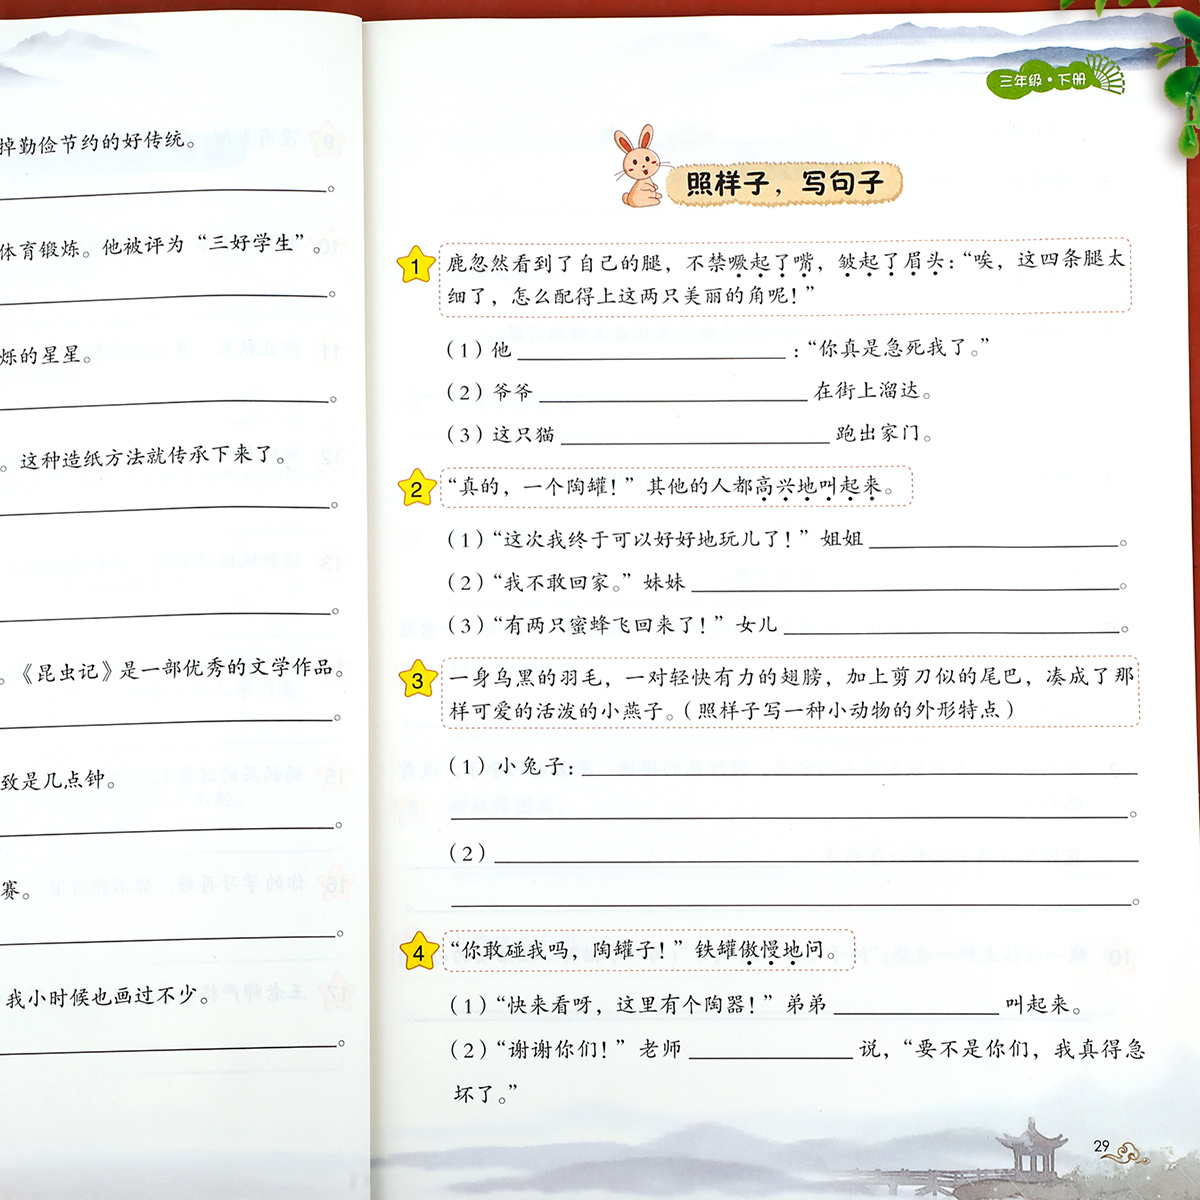 掉勤俭节约的好传统。
。
体育锻炼。他被评为“三好学生”。
。
烁的星星。
。
。这种造纸方法就传承下来了。
。
。
。《昆虫记》是一部优秀的文学作品。
。
致是几点钟。
。
赛。
。
我小时候也画过不少。
。
三年级·下册
照样子，写句子
1 鹿忽然看到了自己的腿，不禁噘起了嘴，皱起了眉头：“唉，这四条腿太
细了，怎么配得上这两只美丽的角呢！”
（1）他 ：“你真是急死我了。”
（2）爷爷 在街上溜达。
（3）这只猫 跑出家门。
2 “真的，一个陶罐！”其他的人都高兴地叫起来。
（1）“这次我终于可以好好地玩儿了！”姐姐 。
（2）“我不敢回家。”妹妹 。
（3）“有两只蜜蜂飞回来了！”女儿 。
3 一身乌黑的羽毛，一对轻快有力的翅膀，加上剪刀似的尾巴，凑成了那
样可爱的活泼的小燕子。（照样子写一种小动物的外形特点）
（1）小兔子：
。
（2）
。
4 “你敢碰我吗，陶罐子！”铁罐傲慢地问。
（1）“快来看呀，这里有个陶器！”弟弟 叫起来。
（2）“谢谢你们！”老师 说，“要不是你们，我真得急
坏了。”
29